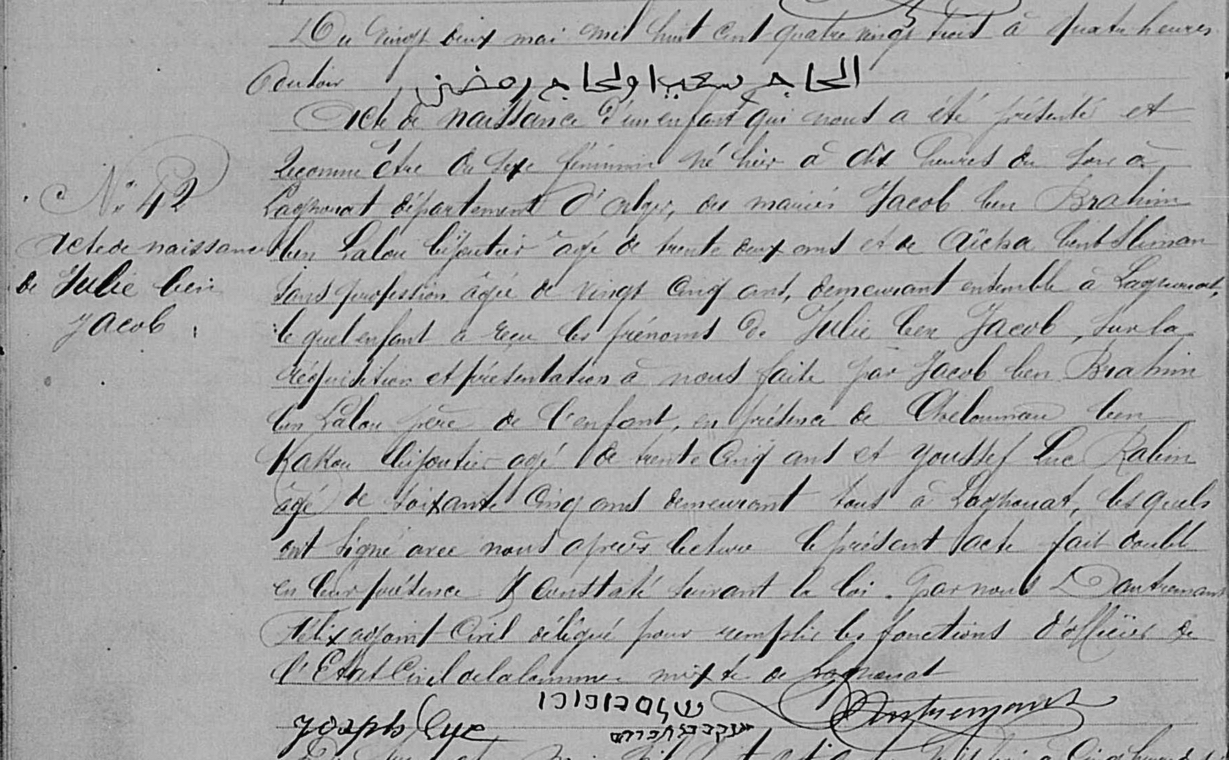 Du vingt deux mai mil huit cent quatre vingt trois à quatre heures
du soir
الحاج سعيد اولحاج رمضن
Acte de naissance d'un enfant qui nous a été présenté et
reconnu être du sexe féminin né hier à dix heures du soir à
Laghouat département d'Alger, des mariés Jacob ben Brahim
ben Lalou bijoutier âgé de trente deux ans et de Aïcha bent Sliman
sans profession âgée de vingt cinq ans, demeurant ensemble à Laghouat,
lequel enfant a reçu les prénoms de Julie ben Jacob, sur la
réquisition et présentation à nous faite par Jacob ben Brahim
ben Lalou père de l'enfant, en présence de Cheloumou ben
Kakou bijoutier âgé de trente cinq ans et Youssef Luc Rabin
âgé de soixante cinq ans demeurant tous à Laghouat, lesquels
ont signé avec nous après lecture le présent acte fait double
en leur présence & constaté suivant la loi. Par nous Dautremant
Félix adjoint Civil délégué pour remplir les fonctions d'officier de
l'Etat Civil de la Commune mixte de Laghouat
Nº 42
Acte de naissance
de Julie ben
Jacob
Joseph
Dautremant